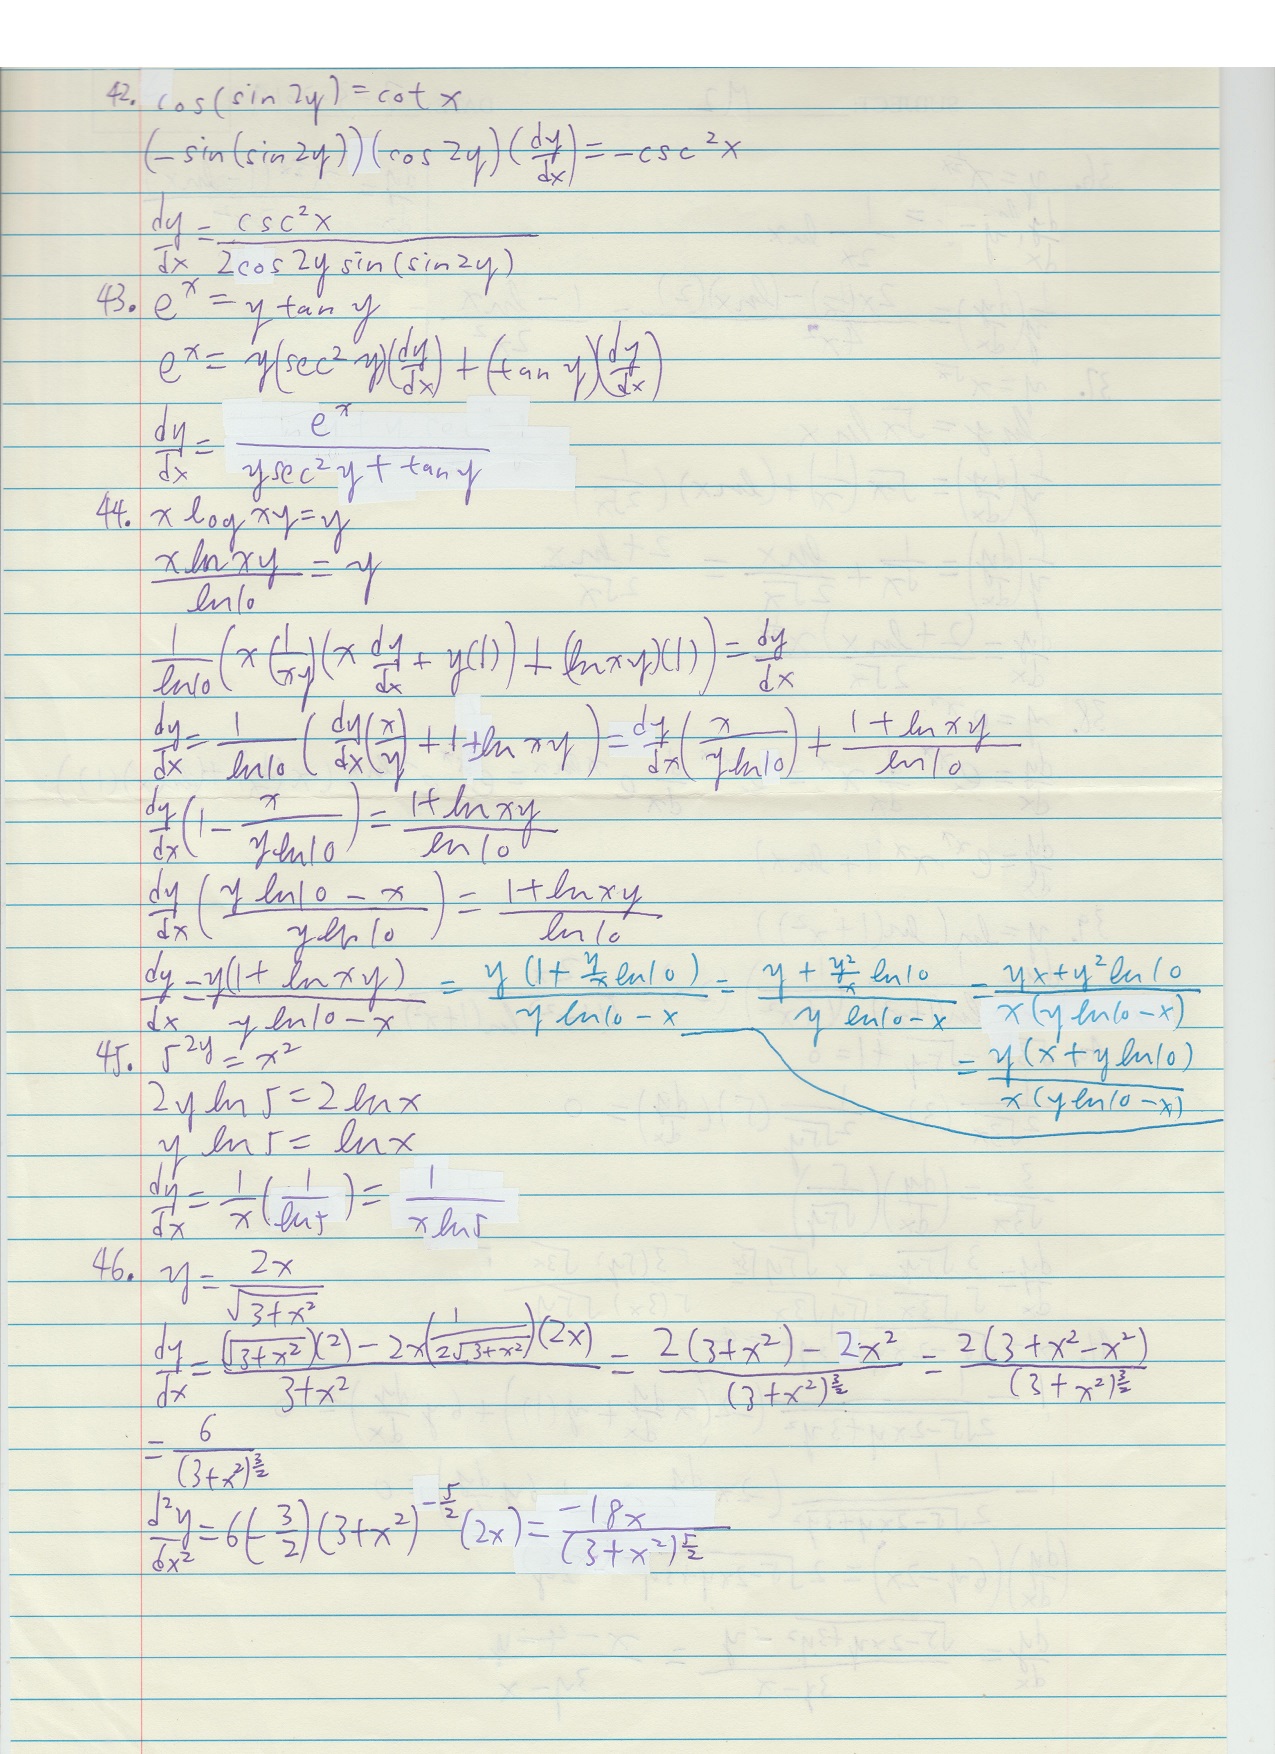 42. cos(sin 2y) = cot x
(-sin(sin 2y))(cos 2y)(dy/dx) = -csc²x
dy/dx = csc²x / 2cos 2y sin(sin 2y)
43. e^x = y tan y
e^x = y(sec² y)(dy/dx) + (tan y)(dy/dx)
dy/dx = e^x / y sec² y + tan y
44. x log xy = y
x ln xy / ln 10 = y
1/ln 10 (x(1/xy)(x dy/dx + y(1)) + (ln xy)(1)) = dy/dx
dy/dx = 1/ln 10 (dy/dx(x/y) + 1 + ln xy) = dy/dx(x / y ln 10) + 1 + ln xy / ln 10
dy/dx(1 - x / y ln 10) = 1 + ln xy / ln 10
dy/dx (y ln 10 - x / y ln 10) = 1 + ln xy / ln 10
dy/dx = y(1 + ln xy) / y ln 10 - x = y (1 + y/x ln 10) / y ln 10 - x = y + y²/x ln 10 / y ln 10 - x = yx + y² ln 10 / x(y ln 10 - x)
= y(x + y ln 10) / x(y ln 10 - x)
45. 5^2y = x²
2y ln 5 = 2 ln x
y ln 5 = ln x
dy/dx = 1/x (1/ln 5) = 1 / x ln 5
46. y = 2x / √3+x²
dy/dx = (√3+x²)(2) - 2x(1 / 2√3+x²)(2x) / 3+x² = 2(3+x²) - 2x² / (3+x²)^3/2 = 2(3+x²-x²) / (3+x²)^3/2
= 6 / (3+x²)^3/2
d²y/dx² = 6(-3/2)(3+x²)^-5/2 (2x) = -18x / (3+x²)^5/2